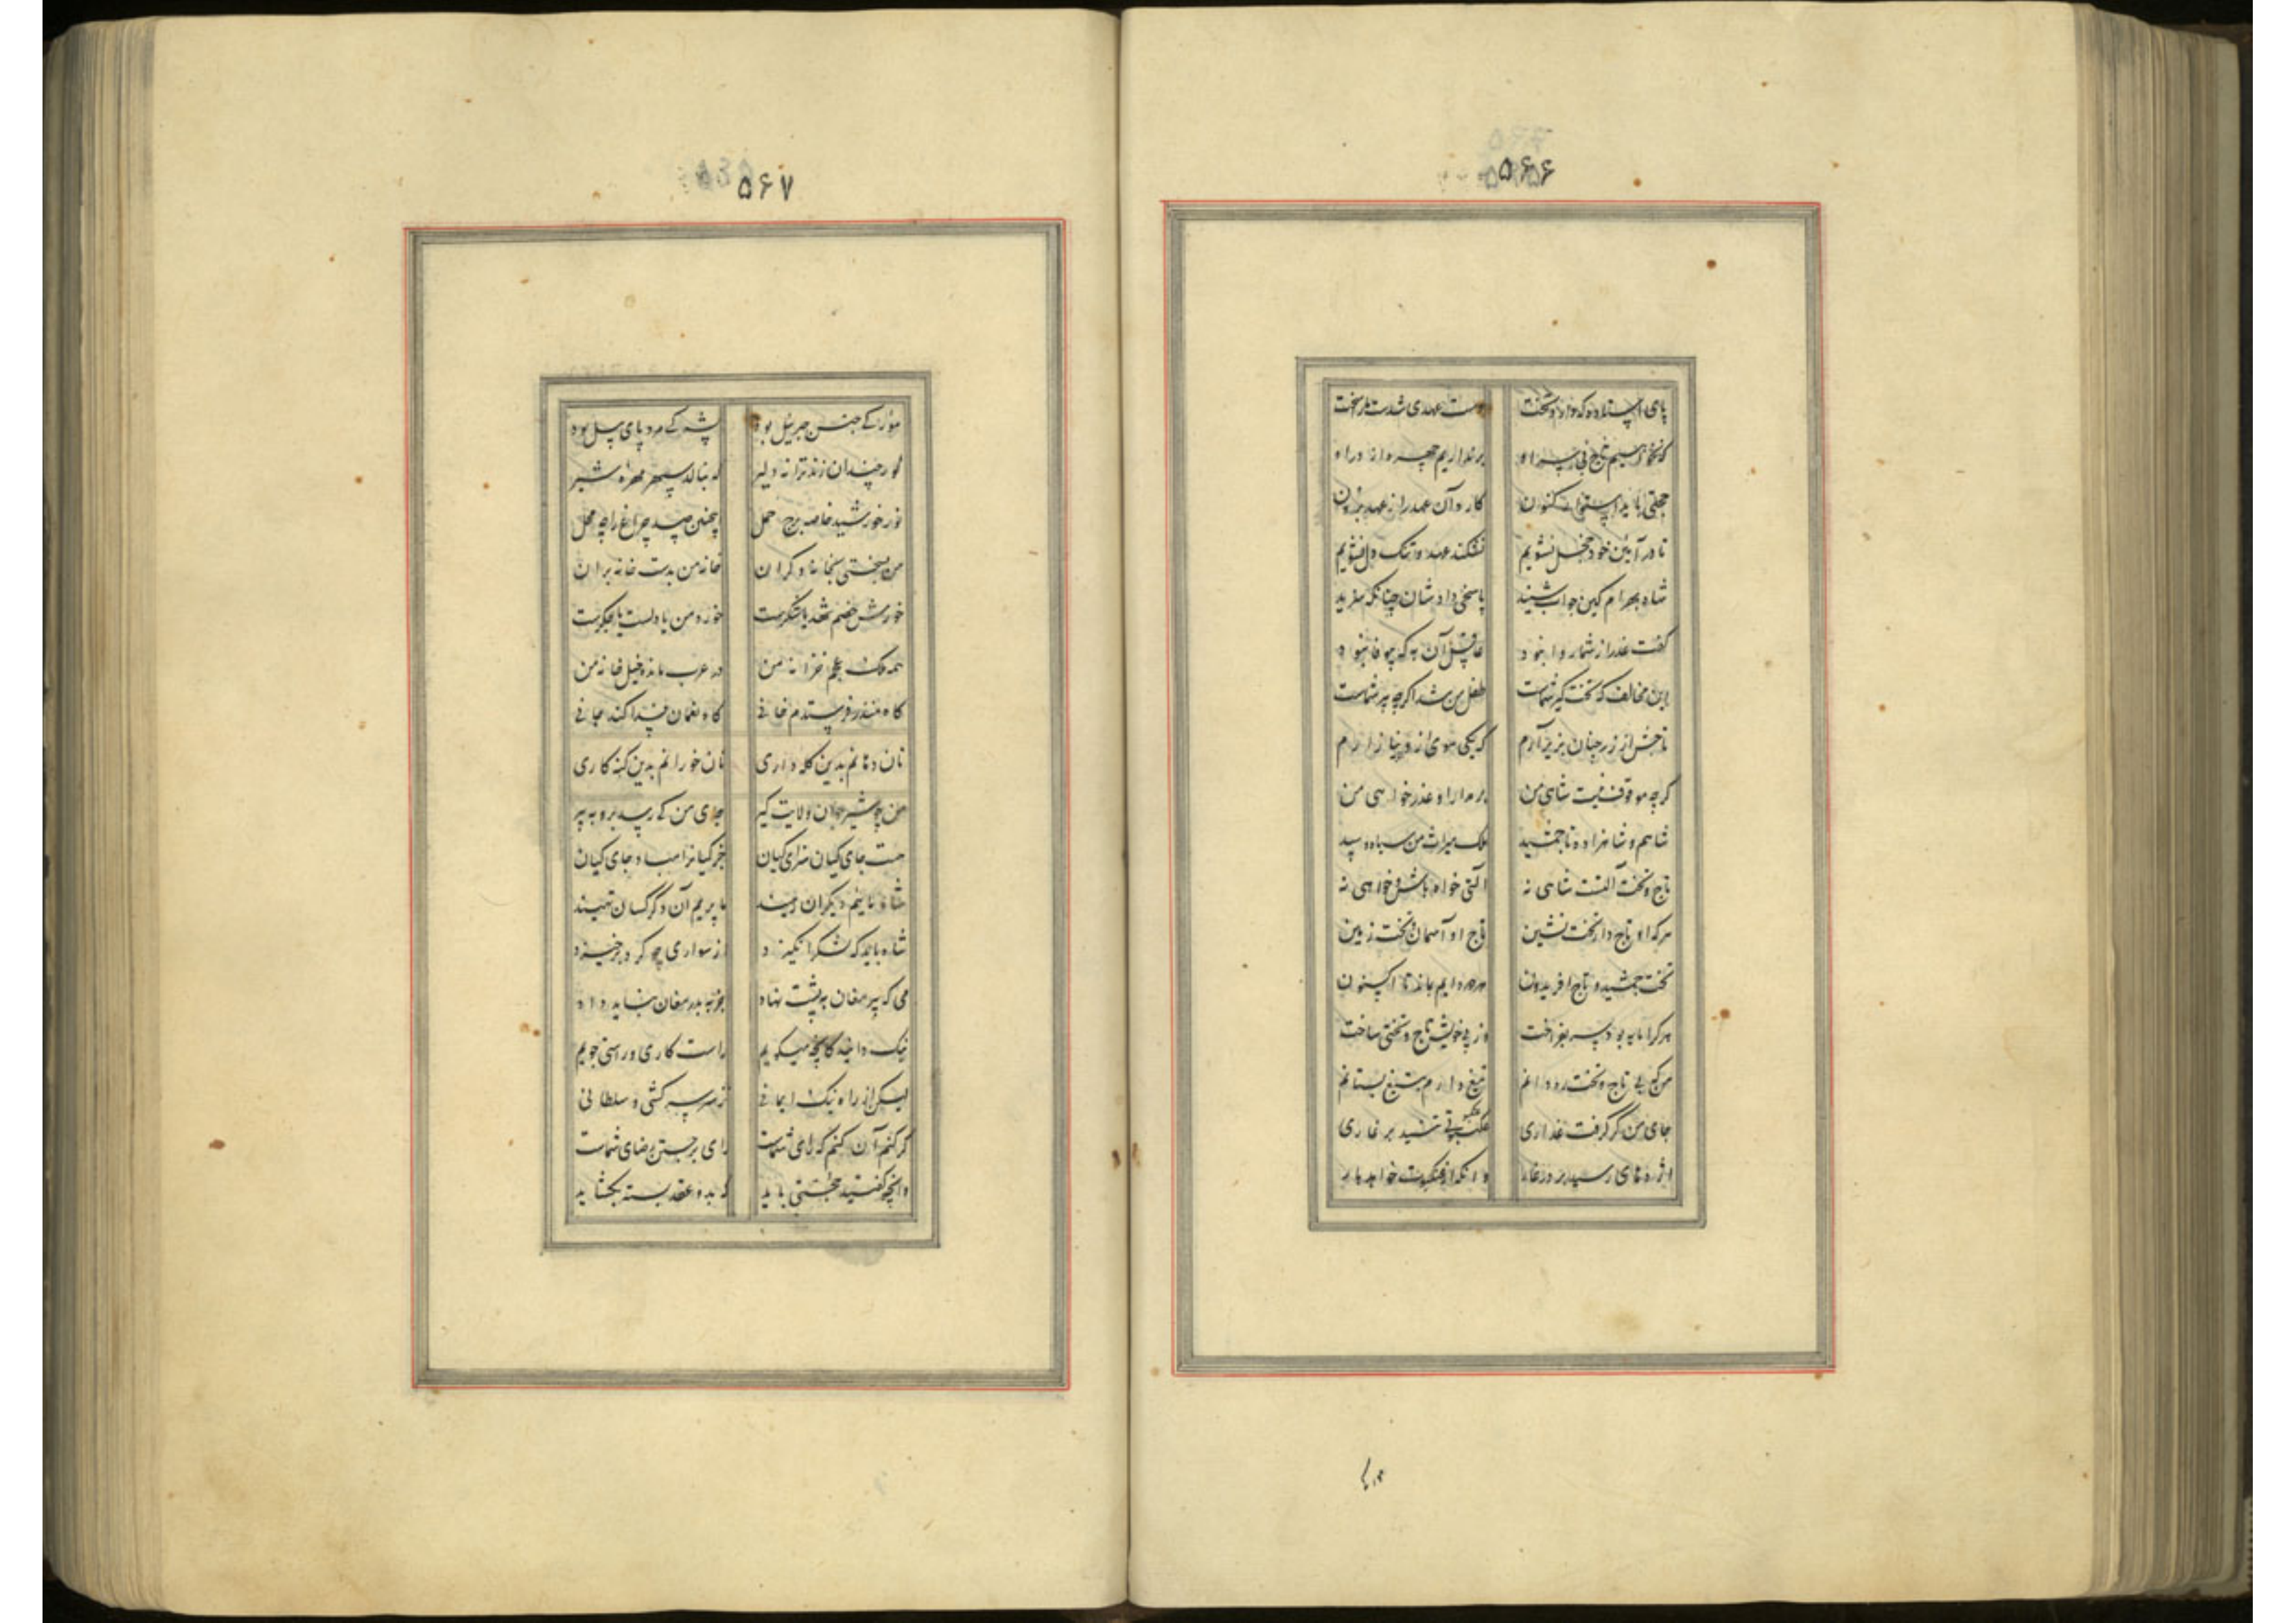 ۵۶۶
پای ... هست عهدی شدست باز سخت
که نخواهیم تاج بی سر او برنداریم چهره از در او
حجتی باید استوار کنون کارد آن عهد را ز عهد برون
تا در آیین خود خجل نشویم نشکند عهد و تنگ دل نشویم
شاه بهرام کین جواب شنید پاسخی دادشان چنانکه سزید
گفت عذر از شما روا نبود عاقل آن به که بیوفا نبود
این مخالف که تخت گیر شماست طفل من شد اگرچه پیر شماست
تاجش از سر چنان بزیر آرم که یکی موی ازو نیازارم
گرچه موقوف نیست شاهی من بر مدارا و عذرخواهی من
شاهم و شاهزاده تا جمشید ملک میراث من سیاه و سپید
تاج و تخت آلتست شاهی نه آلتی خواه باش و خواهی نه
هرکه او تاج دار تخت نشین تاج او آسمان و تخت زمین
تخت جمشید و تاج افریدون هر دو دایم نماند تا اکنون
هرکرا مایه بود سر بفراخت وز پی خویش تاج و تختی ساخت
من که بی تاج و تخت ره دانم تیغ دارم به تیغ بستانم
جای من گر گرفت غداری عنکبوتی تنید بر غاری
اژدهای رسید بر در غار وانگه از عنکبوت خواهد بار
۵۶۷
مور را کی جنس جبرئیل بود پشه کی مرد پای پیل بود
گور چندان زند ترانه دلیر که ننالد سپهر مهره شیر
نور خورشید خاصه برج حمل اینچنین صد چراغ را چه محل
من بسختی بخانه دگران خانه من بدست خانه بران
خورش خصم شهد یا شکرست خورد من یا دلست یا جگرست
همه ملک عجم خزانه من در عرب مانده خیل خانه من
گاه منذر فرستدم خانی گاه نعمان فدا کند جانی
نان دهانم بدین کله داری نان خورانم بدین گنه کاری
من چو شیر جوان ولایت گیر جای من کی رسد بروبه پیر
هست جای کیان سزای کیان جز کیانرا مباد جای کیان
شاه ماییم دیگران رهیند ما پریم آن دگر کسان تهیند
شاه باید که لشکر انگیزد از سواری چو گرد برخیزد
می که پیر مغان بپشت نهاد جز به پور مغان نشاید داد
نیک دانید کانچه میگویم راست کاری و راستی جویم
لیکن از راه نیک ایجانی نز سر سرکشی و سلطانی
گر کنم آن کنم که رای شماست رای برجستن رضای شماست
وانچه گفتید حجتی باید که بدو عقد بسته بگشاید